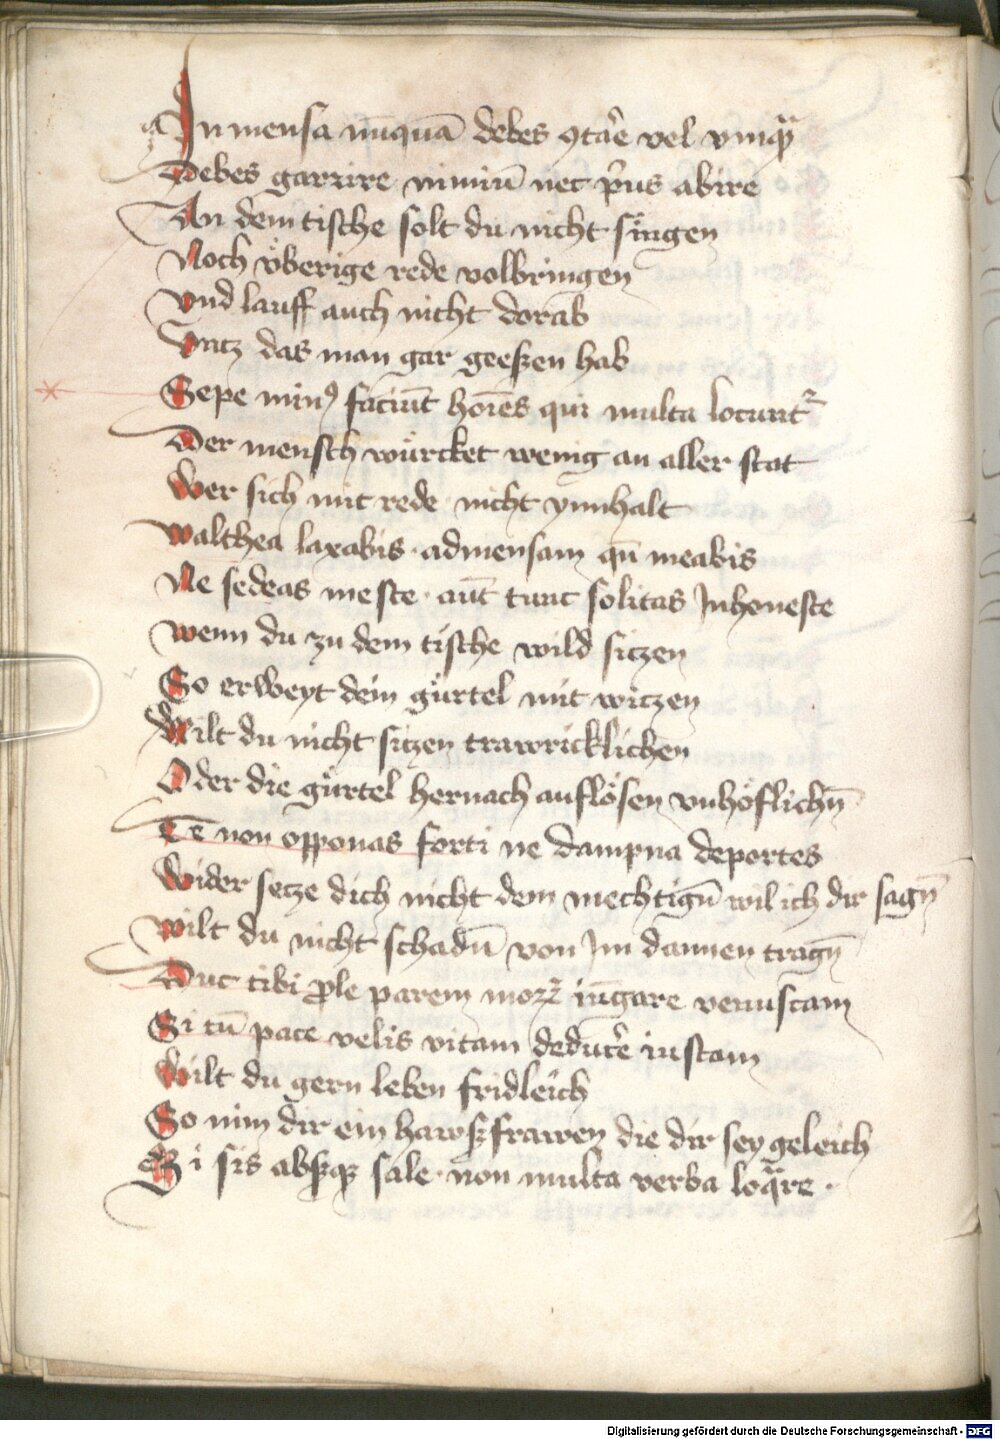 In mensa nūquā debes ꝯtāre vel vmqᷓ
Debes garrire nimiū nec p̄us abire
An dem tische solt du nicht singen
Noch vͤberige rede volbringen
Vnd lauff auch nicht dorab
Vntz das man gar geeſzen hab
Sepe minꝰ faciūt hoīes qui multa locuntᷣ
Der mensch wuͤrcket wenig an aller stat
Wer sich mit rede nicht ynnhalt
Walthea laxabis · ad mensam qn̄ meabis
Ne sedeas meste · aut tunc solitas Inheneste
Wenn du zu dem tische wild sitzen
So erweyt dein guͤrtel mit witzen
Wilt du nicht sitzen trawricklichen
Oder die guͤrtel hernach aufloͤsen vnhoͤflichn̄
Te non opponas forti ne dampna deportes
Wider setze dich nicht dem mechtign̄ wil ich dir sagn̄
Wilt du nicht schadn̄ von Im dannen tragn̄
Duc tibi ꝓle parem morꝝ iūgare venustam
Si tū pace velis vitam deducere iustam
Wilt du gern leben fridleich
So nim dir ein hawſzfrawen die dir sey geleich
Si sis absqꝫ sale · non multa verba loqᷓre ·
Digitalisierung gefördert durch die Deutsche Forschungsgemeinschaft - DFG